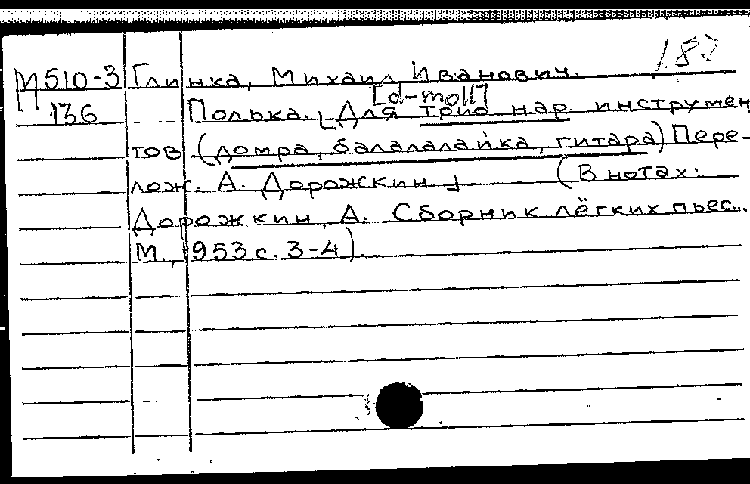 187
М510-3 Глинка, Михаил Иванович.
136 [d-moll]
Полька. [Для трио нар инструмен
тов (домра, балалалайка, гитара) Пере-
лож. А. Дорожкин] (В нотах:
Дорожкин, А. Сборник лёгких пьес..
М., 1953 с. 3-4).